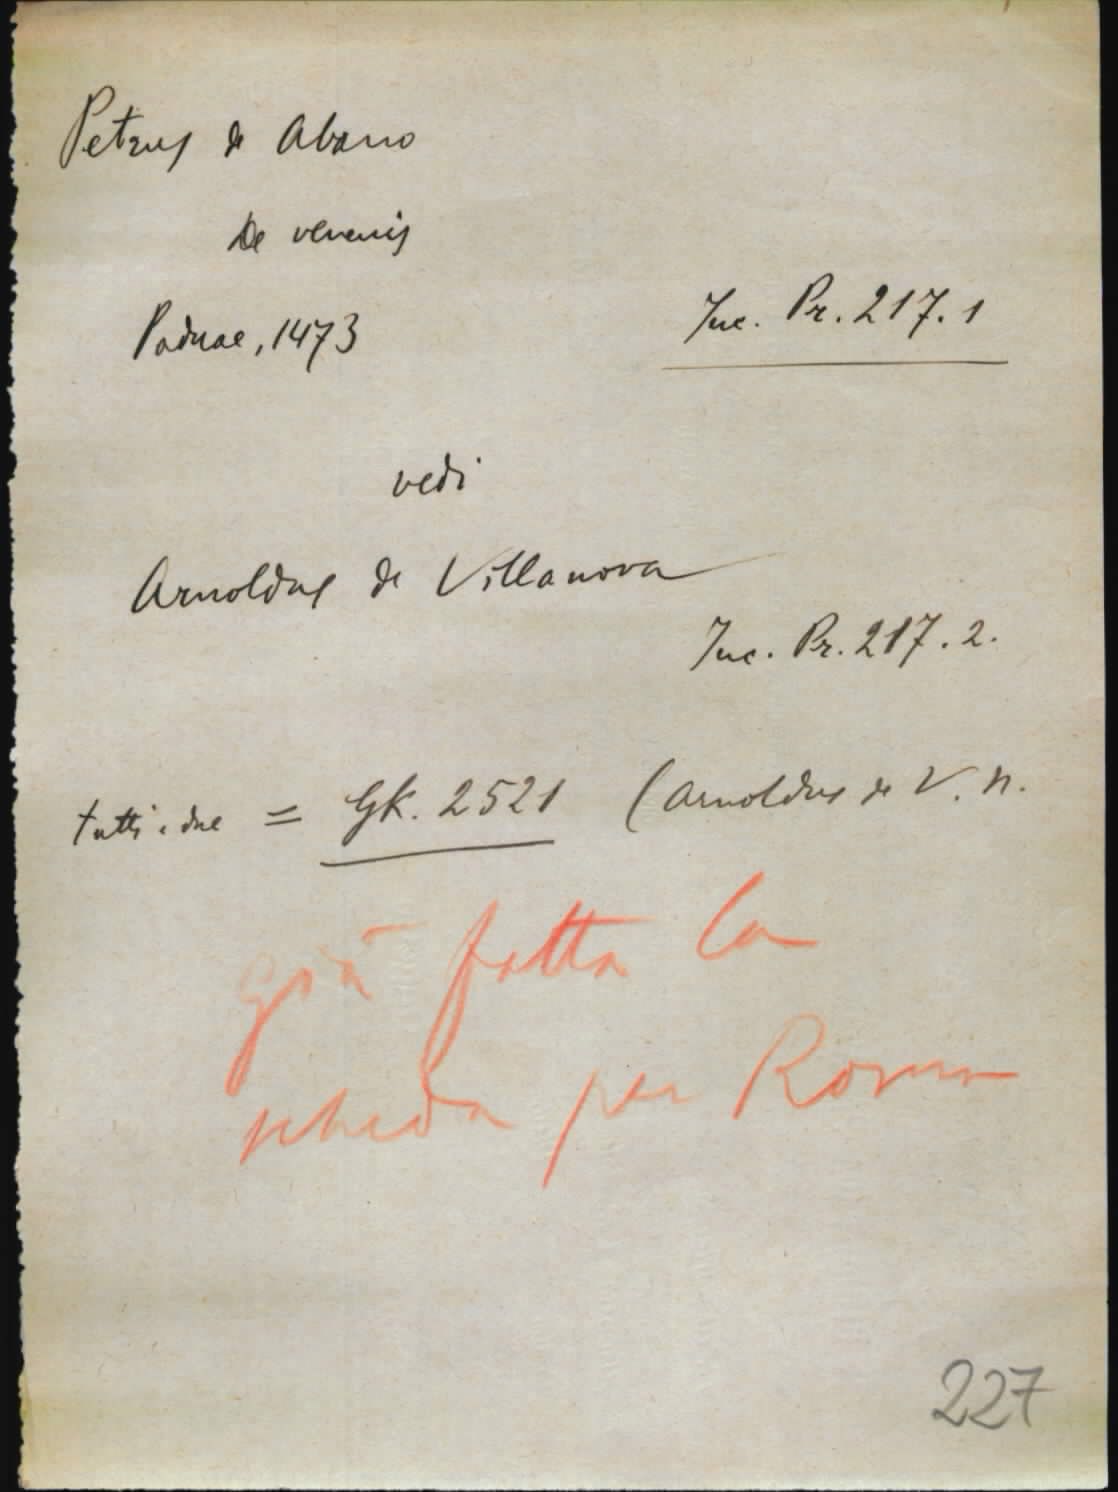 Petrus de Abano
De venenis
Paduae, 1473
Inc. Pr. 217.1
vedi
Arnoldus de Villanova
Inc. Pr. 217.2.
tutti e due = GK. 2521 (Arnoldus de V. n.
già fatta la
scheda per Roma
227